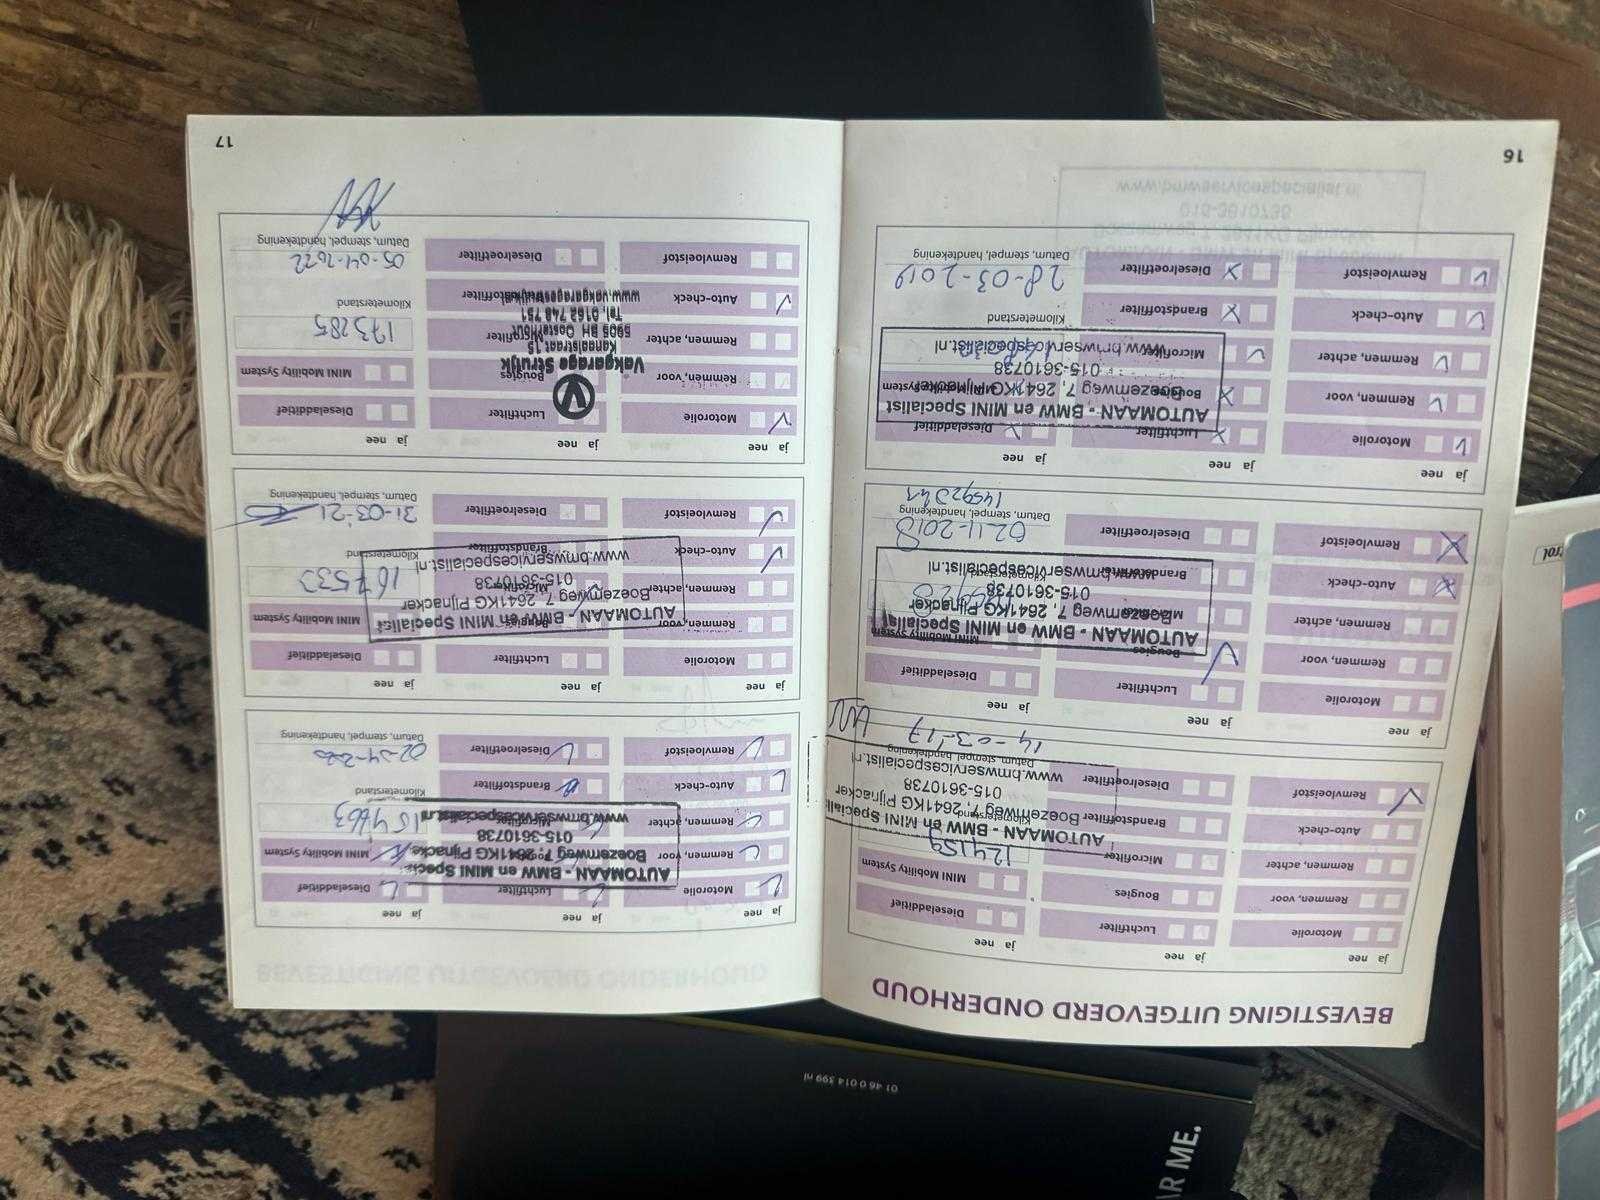 BEVESTIGING UITGEVOERD ONDERHOUD
ja nee ja nee ja nee
Motorolie Luchtfilter Dieseladditief
Remmen, voor Bougies MINI Mobility System
Remmen, achter Microfilter 124159
Auto-check Brandstoffilter Kilometerstand
Remvloeistof Dieselroetfilter
AUTOMAAN - BMW en MINI Speciali
Boezemweg 7, 2641KG Pijnacker
015-3610738
www.bmwservicespecialist.nl
Datum, stempel, handtekening
14-03-'17
ja nee ja nee ja nee
Motorolie Luchtfilter Dieseladditief
Remmen, voor Bougies MINI Mobility System
Remmen, achter
Auto-check Brandstoffilter Kilometerstand
Remvloeistof Dieselroetfilter
AUTOMAAN - BMW en MINI Specialist
Boezemweg 7, 2641KG Pijnacker
015-3610738
www.bmwservicespecialist.nl
02-11-2018
Datum, stempel, handtekening
ja nee ja nee ja nee
Motorolie Luchtfilter Dieseladditief
Remmen, voor Bougies MINI Mobility System
Remmen, achter Microfilter
Auto-check Brandstoffilter Kilometerstand
Remvloeistof Dieselroetfilter 28-03-2019
AUTOMAAN - BMW en MINI Specialist
Boezemweg 7, 2641KG Pijnacker
015-3610738
www.bmwservicespecialist.nl
Datum, stempel, handtekening
16
BEVESTIGING UITGEVOERD ONDERHOUD
ja nee ja nee ja nee
Motorolie Luchtfilter Dieseladditief
Remmen, voor MINI Mobility System
Remmen, achter Microfilter
Auto-check Brandstoffilter Kilometerstand
Remvloeistof Dieselroetfilter
AUTOMAAN - BMW en MINI Specia
Boezemweg 7, 2641KG Pijnacke
015-3610738
www.bmwservicespecialist.nl
Datum, stempel, handtekening
ja nee ja nee ja nee
Motorolie Luchtfilter Dieseladditief
Remmen, voor Bougies MINI Mobility System
Remmen, achter Microfilter 167533
Auto-check Brandstoffilter Kilometerstand
Remvloeistof Dieselroetfilter 31-03-'21
AUTOMAAN - BMW en MINI Specialist
Boezemweg 7, 2641KG Pijnacker
015-3610738
www.bmwservicespecialist.nl
Datum, stempel, handtekening
ja nee ja nee ja nee
Motorolie Luchtfilter Dieseladditief
Remmen, voor Bougies MINI Mobility System
Remmen, achter Microfilter 173285
Auto-check Brandstoffilter Kilometerstand
Remvloeistof Dieselroetfilter 05-04-2022
Vakgarage Struijk
Kanaalstraat 15
Oosterhout
Tel. 0162 748 791
Datum, stempel, handtekening
17
01 46 0 014 399 nl
AR ME.